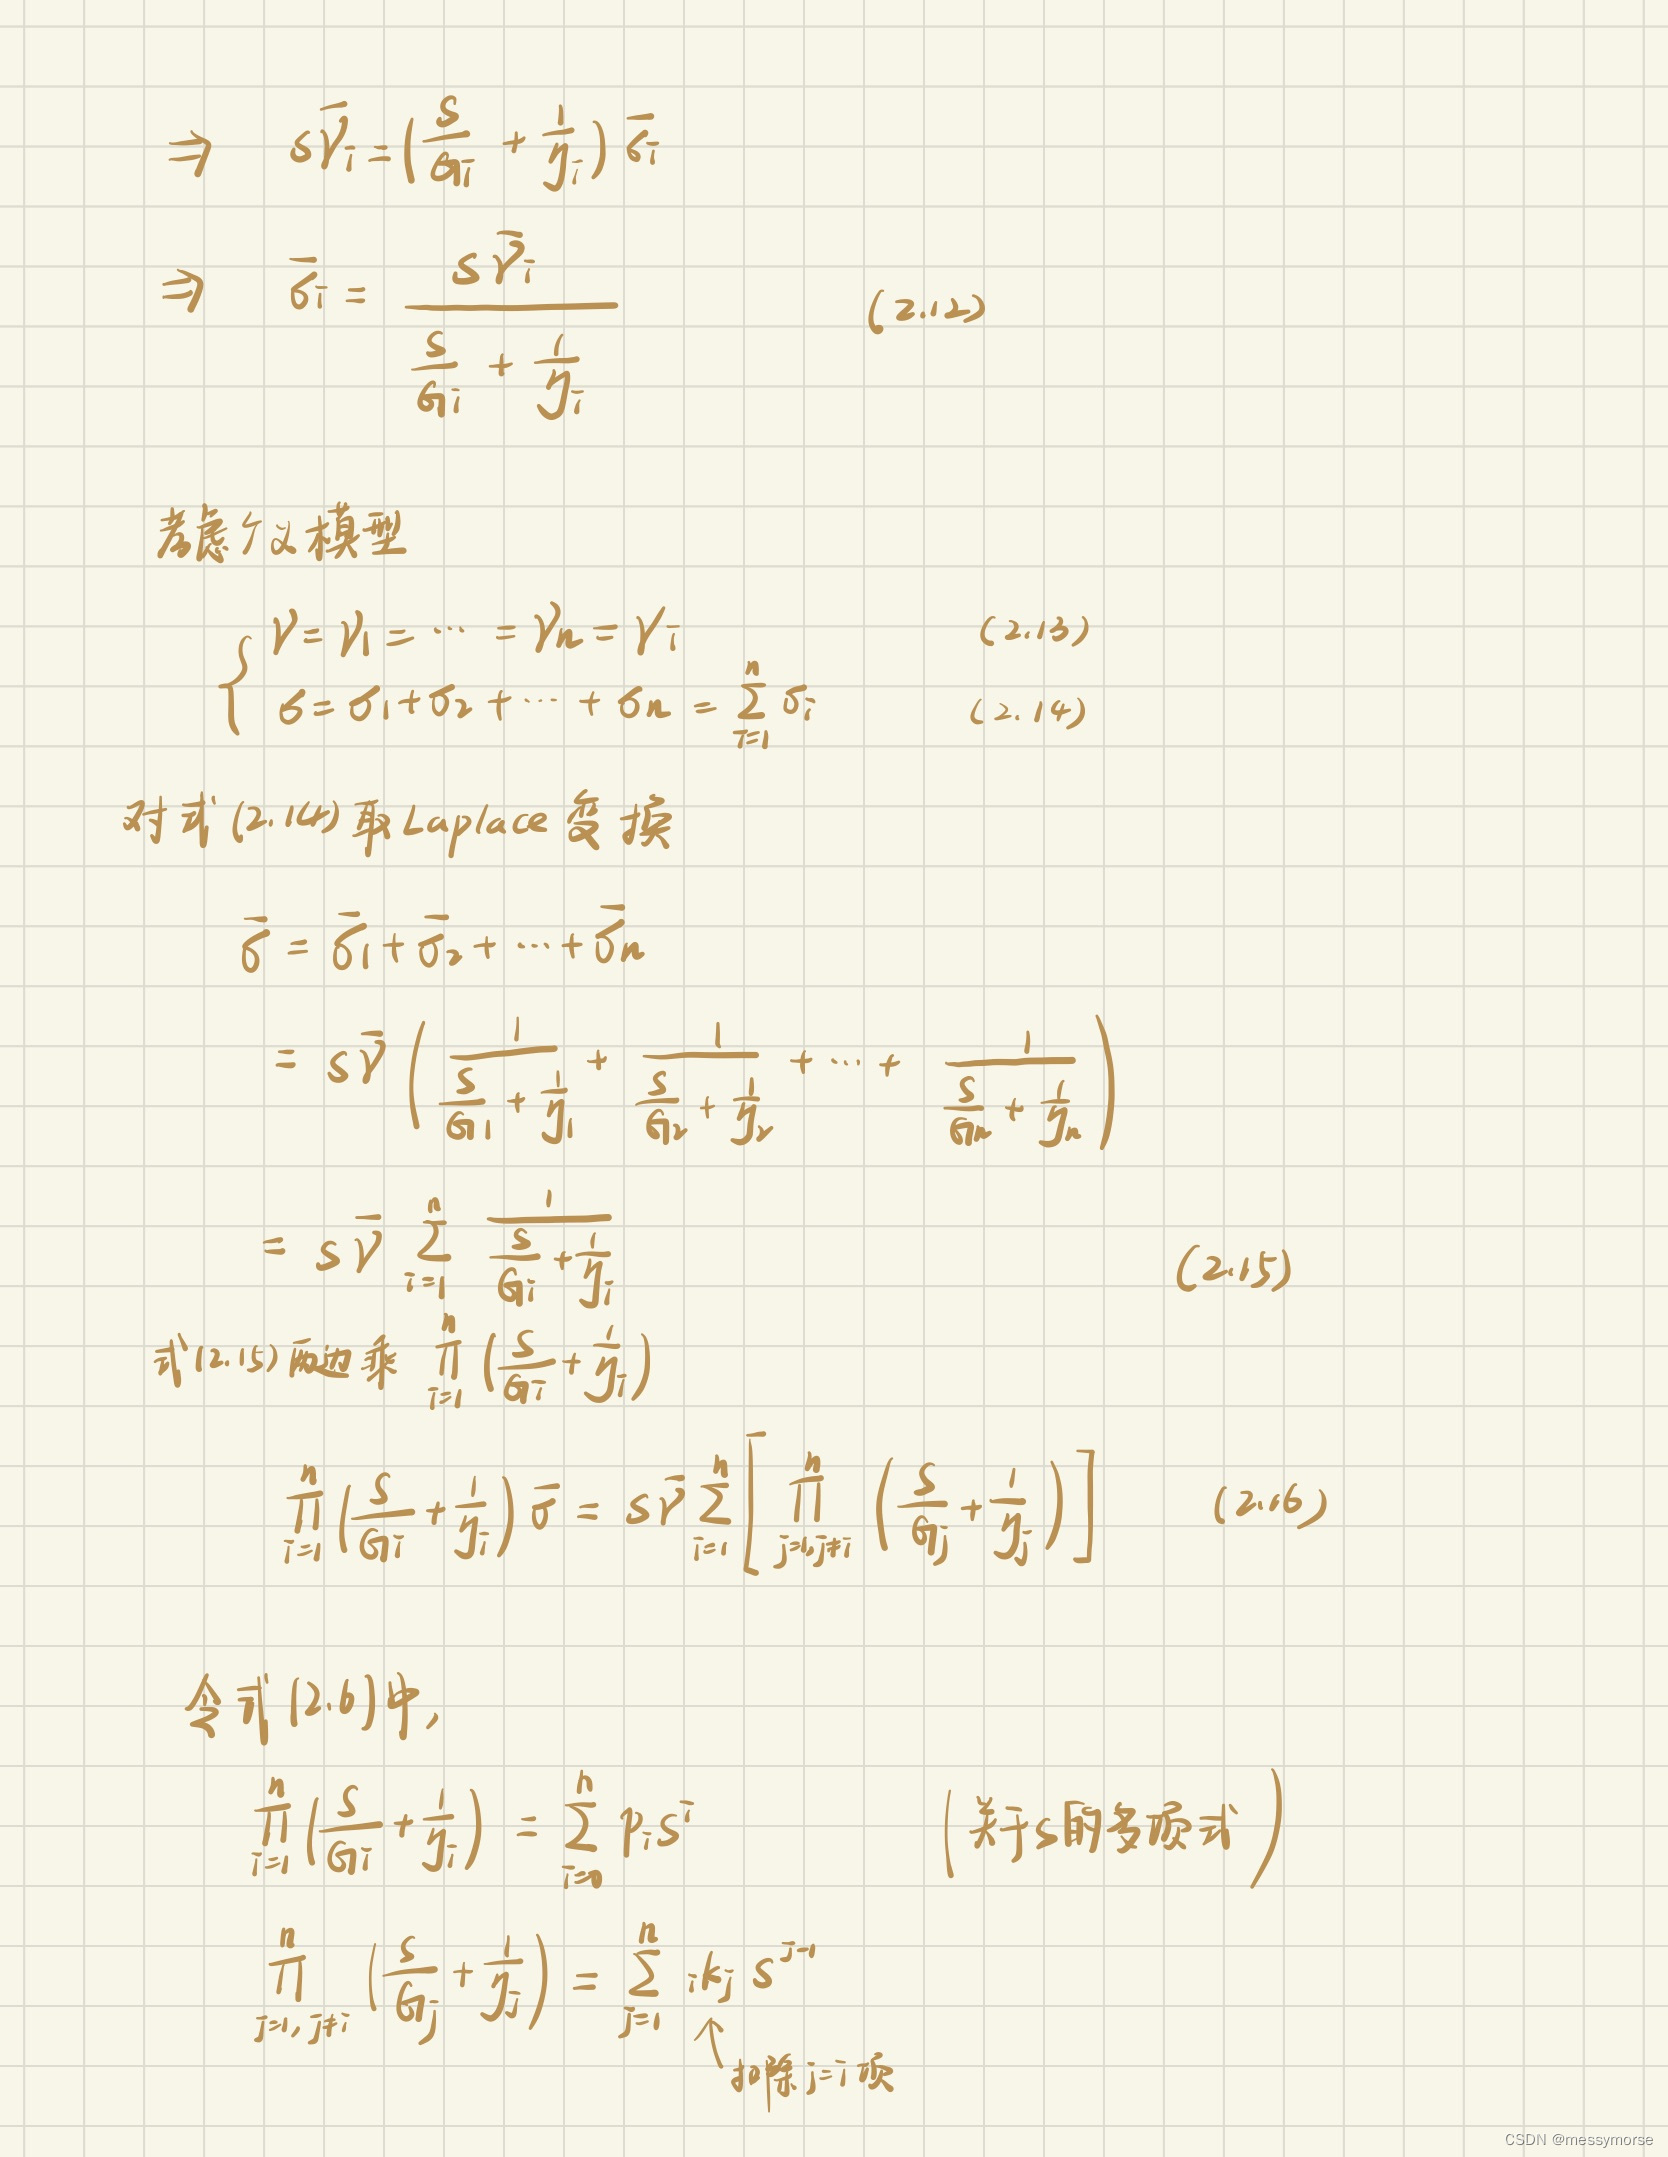 ⇒ sγ̄ᵢ = (s/Gᵢ + 1/ηᵢ) σ̄ᵢ
⇒ σ̄ᵢ = sγ̄ᵢ / (s/Gᵢ + 1/ηᵢ) (2.12)
考虑广义模型
{ γ = γ₁ = ⋯ = γₙ = γᵢ (2.13)
σ = σ₁ + σ₂ + ⋯ + σₙ = ∑_{i=1}^{n} σᵢ (2.14)
对式(2.14)取Laplace变换
σ̄ = σ̄₁ + σ̄₂ + ⋯ + σ̄ₙ
= sγ̄ ( 1/(s/G₁ + 1/η₁) + 1/(s/G₂ + 1/η₂) + ⋯ + 1/(s/Gₙ + 1/ηₙ) )
= sγ̄ ∑_{i=1}^{n} 1/(s/Gᵢ + 1/ηᵢ) (2.15)
式(2.15)两边乘 ∏_{i=1}^{n} (s/Gᵢ + 1/ηᵢ)
∏_{i=1}^{n} (s/Gᵢ + 1/ηᵢ) σ̄ = sγ̄ ∑_{i=1}^{n} [ ∏_{j=1,j≠i}^{n} (s/Gⱼ + 1/ηⱼ) ] (2.16)
令式(2.6)中,
∏_{i=1}^{n} (s/Gᵢ + 1/ηᵢ) = ∑_{i=0}^{n} pᵢsⁱ (关于s的多项式)
∏_{j=1,j≠i}^{n} (s/Gⱼ + 1/ηⱼ) = ∑_{j=1}^{n} ᵢkⱼ s^{j-1}
↑扣除j=i项
CSDN @messymorse